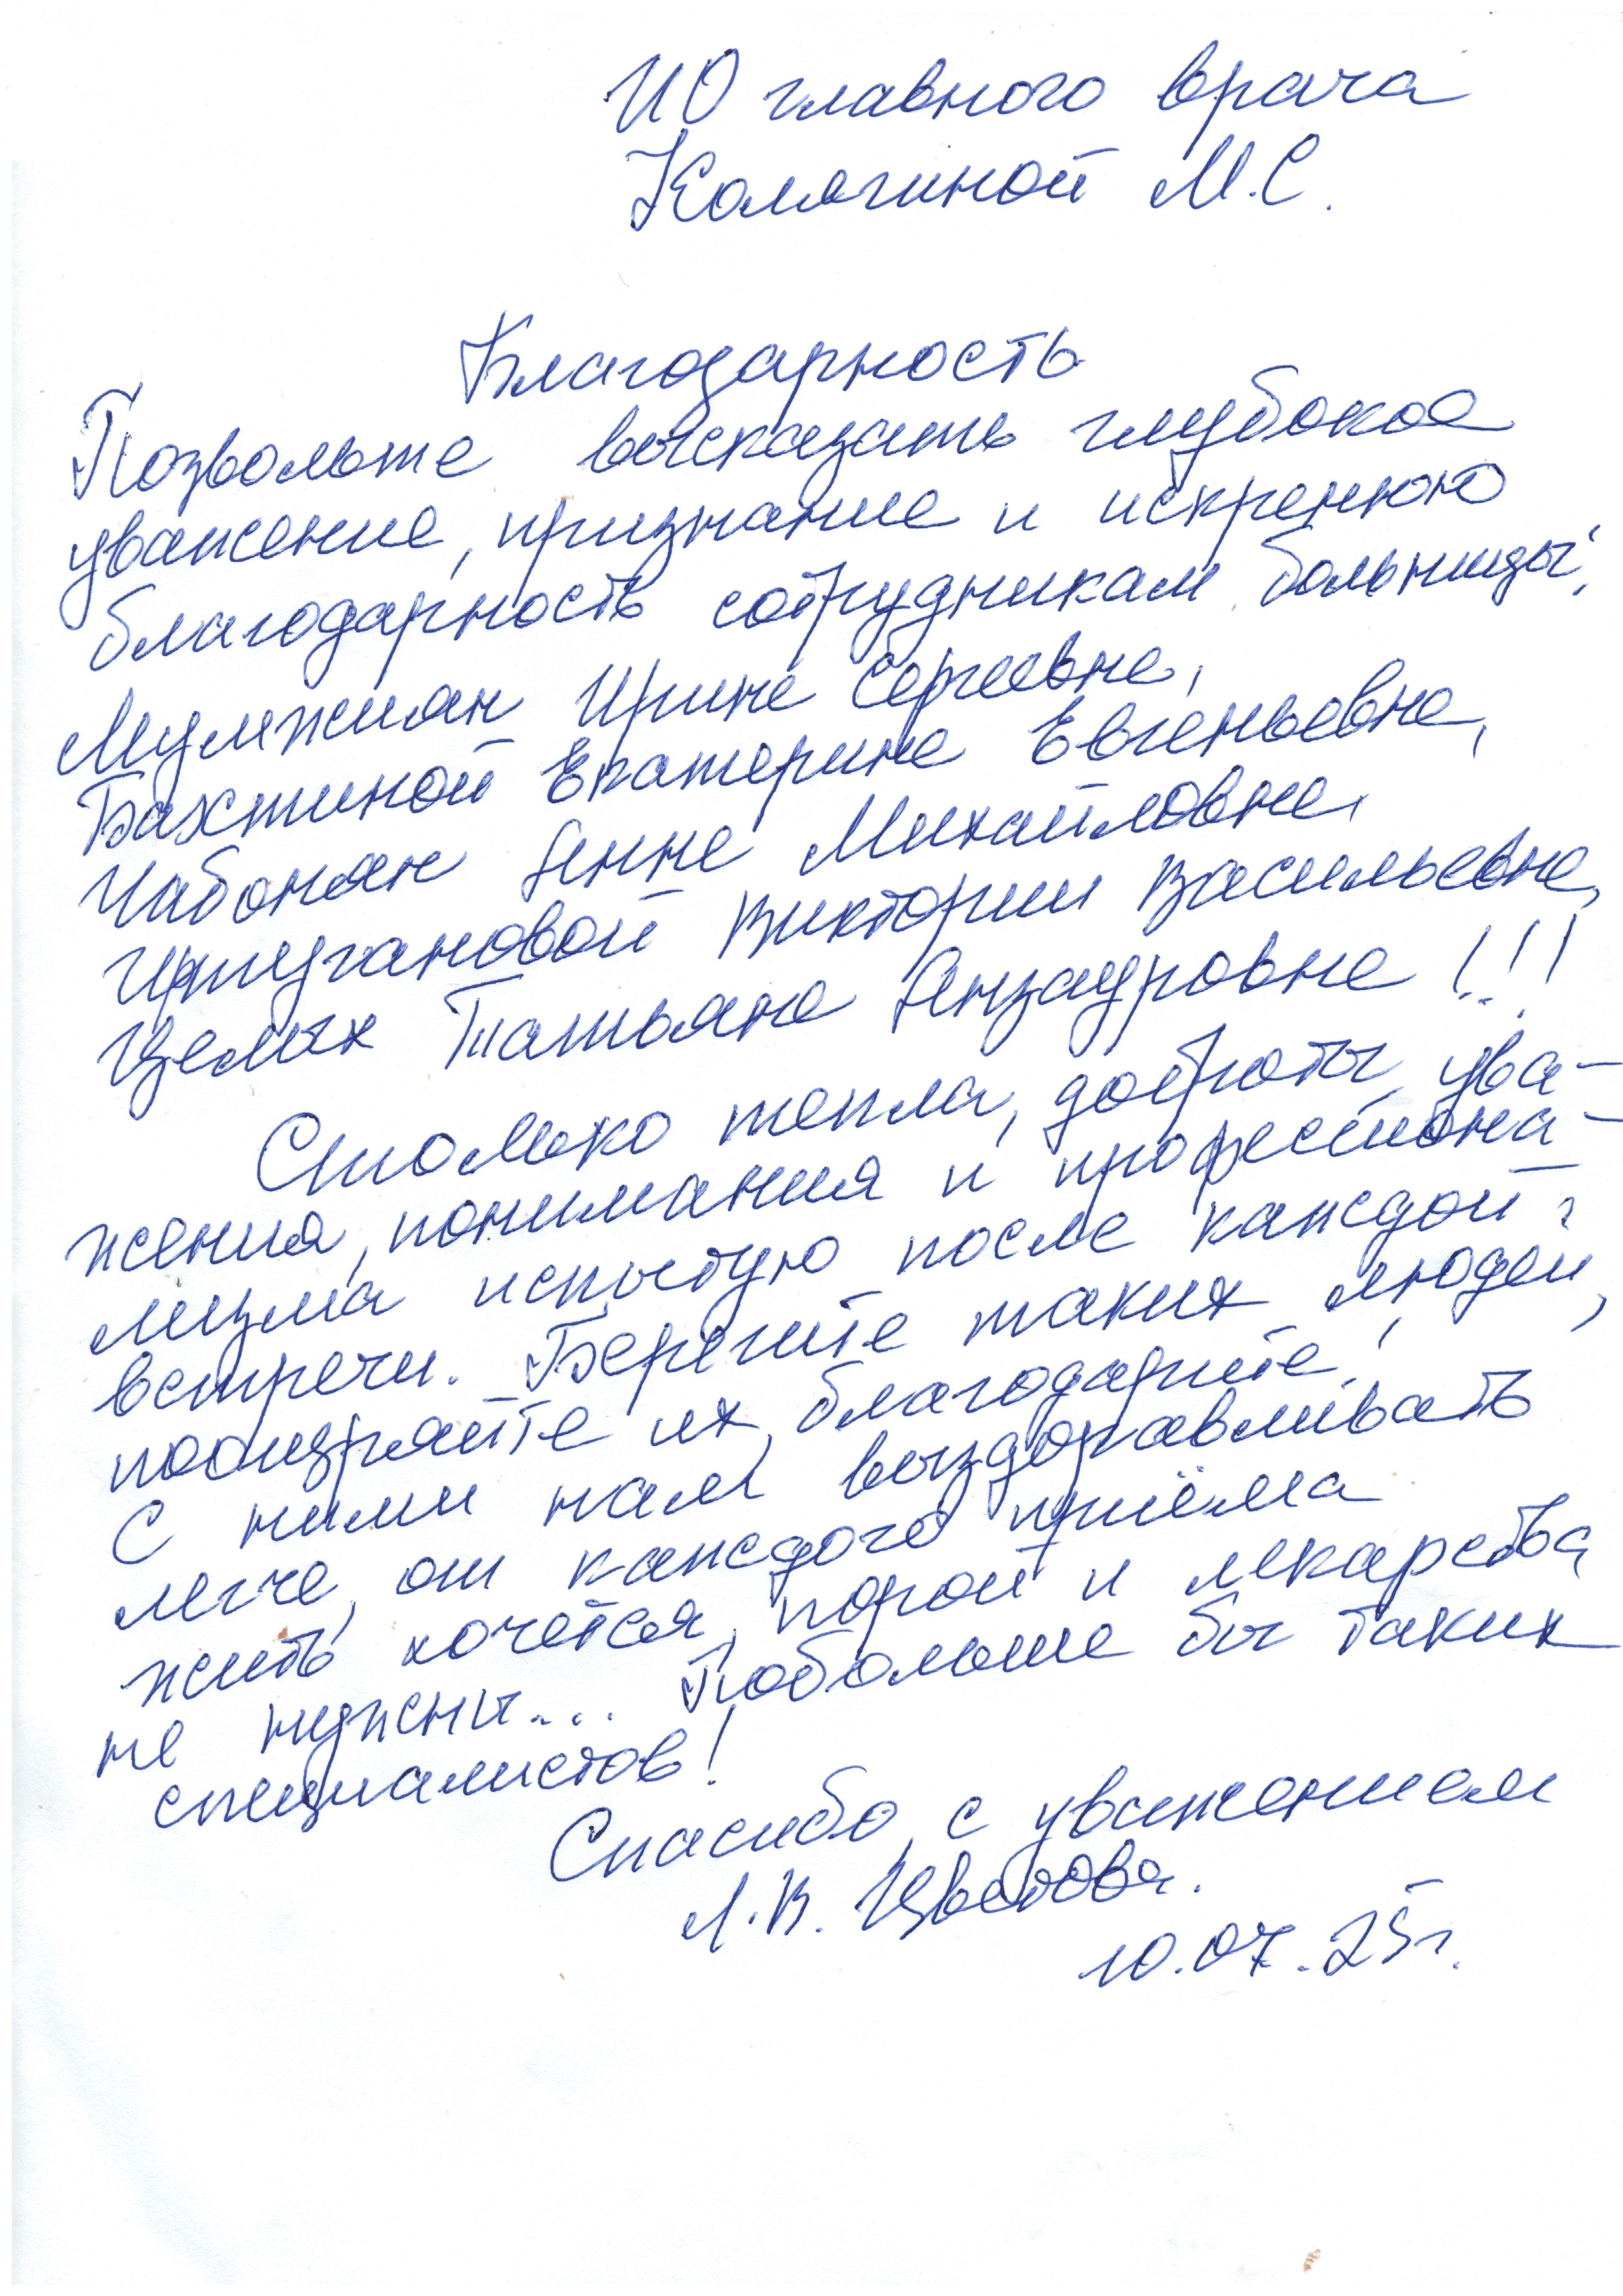 ИО главного врача
Колягиной М.С.
Благодарность
Позвольте высказать глубокое
уважение, признание и искренюю
благодарность сотрудникам больницы:
Мумжиян Ирине Сергеевне,
Бахтиной Екатерине Евгеньевне,
Анне Михайловне,
Виктории Васильевне,
Целых Татьяне Анзауровне!!!
Столько тепла, доброты, ува-
жения, понимания и профессиона-
лизма испытую после каждой
встречи. Берегите таких людей,
поощряйте их, благодарите!
С ними нам выздоравливать
легче, от каждого приёма
жить хочется, порой и лекарства
не нужны... Побольше бы таких
специалистов!
Спасибо, с уважением
Л.В. Цветова.
10.07.25г.